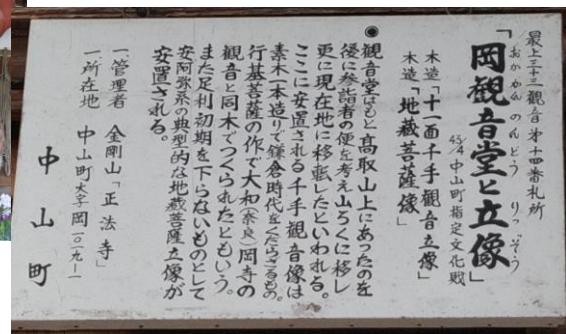 最上三十三観音第十四番札所
おかかんのんどう りつぞう
「岡観音堂と立像」
45/4 中山町指定文化財
木造「十一面千手観音立像」
木造「地蔵菩薩像」
◉
観音堂はもと高取山上にあったのを
後に参詣者の便を考え山ろくに移し
更に現在地に移転したといわれる。
ここに安置される千手観音像は
素木一本造りで鎌倉時代をくだらざるもの。
行基菩薩の作で大和(奈良)岡寺の
観音と同木でつくられたともいう。
また足利初期を下らないものとして
安阿弥系の典型的な地蔵菩薩立像が
安置される。
一、管理者 金剛山「正法寺」
一、所在地 中山町大字岡一〇一九ー一
中山町